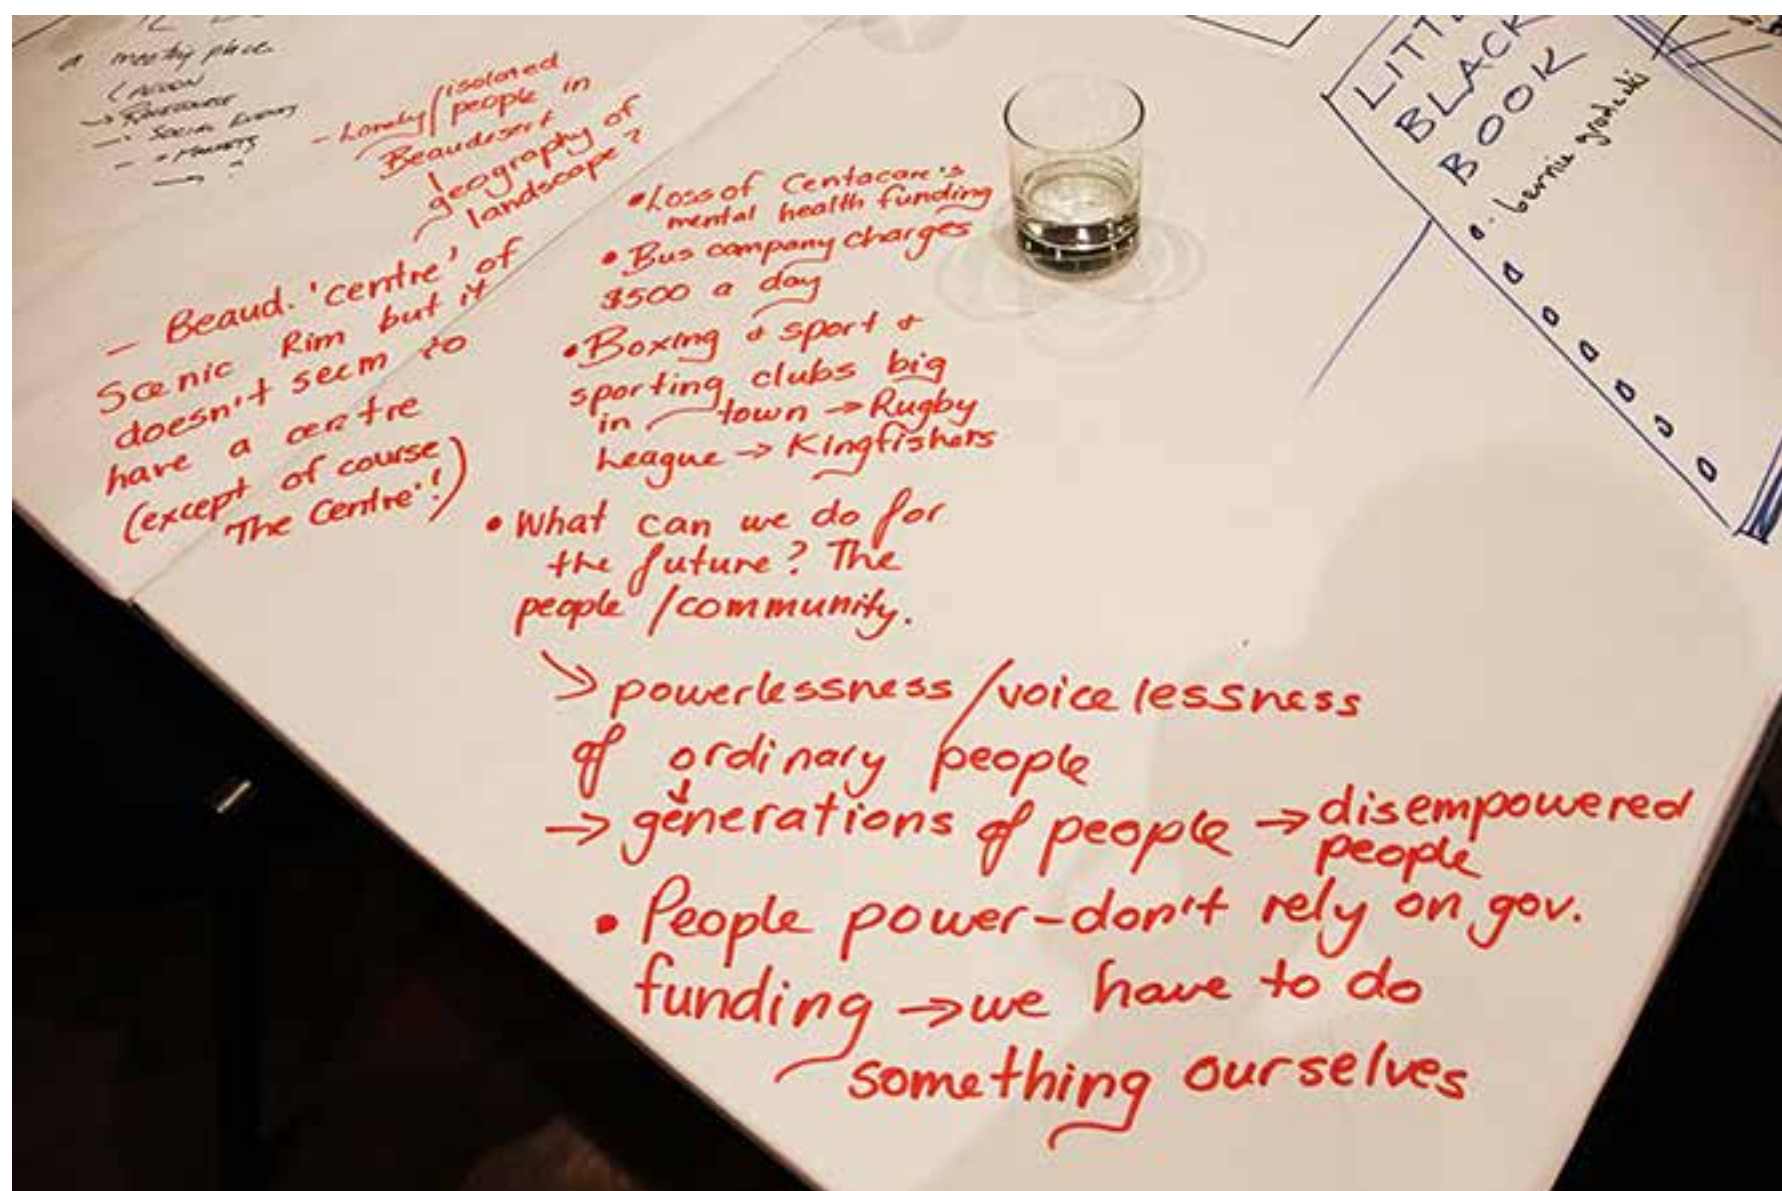 a meeting place
(ACTION
→ RACECOURSE
→ SOCIAL EVENTS
→ MARKETS
→ ?
- Lonely/isolated
people in
Beaudesert
geography of
landscape?
- Beaud. 'centre' of
Scenic Rim but it
doesn't seem to
have a centre
(except of course
'The Centre'!)
• Loss of Centacare's
mental health funding
• Bus company charges
$500 a day
• Boxing & sport &
sporting clubs big
in town → Rugby
League → Kingfishers
• What can we do for
the future? The
people/community.
→ powerlessness/voicelessness
of ordinary people
→ generations of people → disempowered
people
• People power-don't rely on gov.
funding → we have to do
something ourselves
BLACK
BOOK
bernie